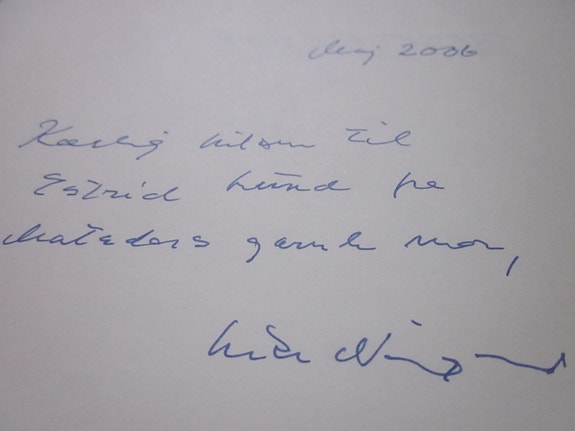 Maj 2006
Kærlig hilsen til
Estrid Lund fra
Matadors gamle mor,
Lise Nørgaard